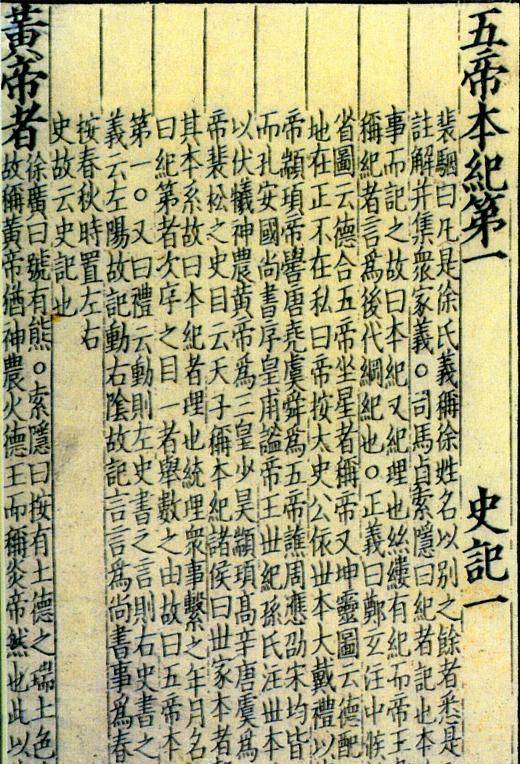 五帝本紀第一 史記一
裴駰曰凡是徐氏義稱徐姓名以別之餘者悉是
註解并集衆家義○司馬貞索隱曰紀者記也本
事而記之故曰本紀又紀理也絲縷有紀而帝王
稱紀者言爲後代綱紀也○正義曰鄭玄注中候
省圖云德合五帝坐星者稱帝又坤靈圖云德配
地在正不在私曰帝按太史公依世本大戴禮以
帝顓頊帝嚳唐堯虞舜爲五帝譙周應劭宋均皆
而孔安國尚書序皇甫謐帝王世紀孫氏注世本
以伏犧神農黃帝爲三皇少昊顓頊高辛唐虞爲
帝裴松之史目云天子稱本紀諸侯曰世家本者
其本系故曰本紀者理也統理衆事繫之年月名
曰紀第者次序之目一者舉數之由故曰五帝本
第一○又曰禮云動則左史書之言則右史書之
義云左陽故記動右陰故記言言爲尚書事爲春
按春秋時置左右
史故云史記也
黃帝者
徐廣曰號有熊○索隱曰按有土德之瑞土色
故稱黃帝猶神農火德王而稱炎帝然也此以